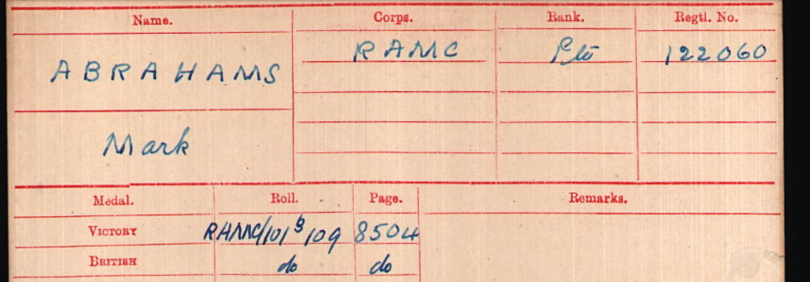 Name. Corps. Rank. Regtl. No.
ABRAHAMS RAMC Pte 122060
Mark
Medal. Roll. Page. Remarks.
VICTORY RAMC/101B109 8504
BRITISH do do